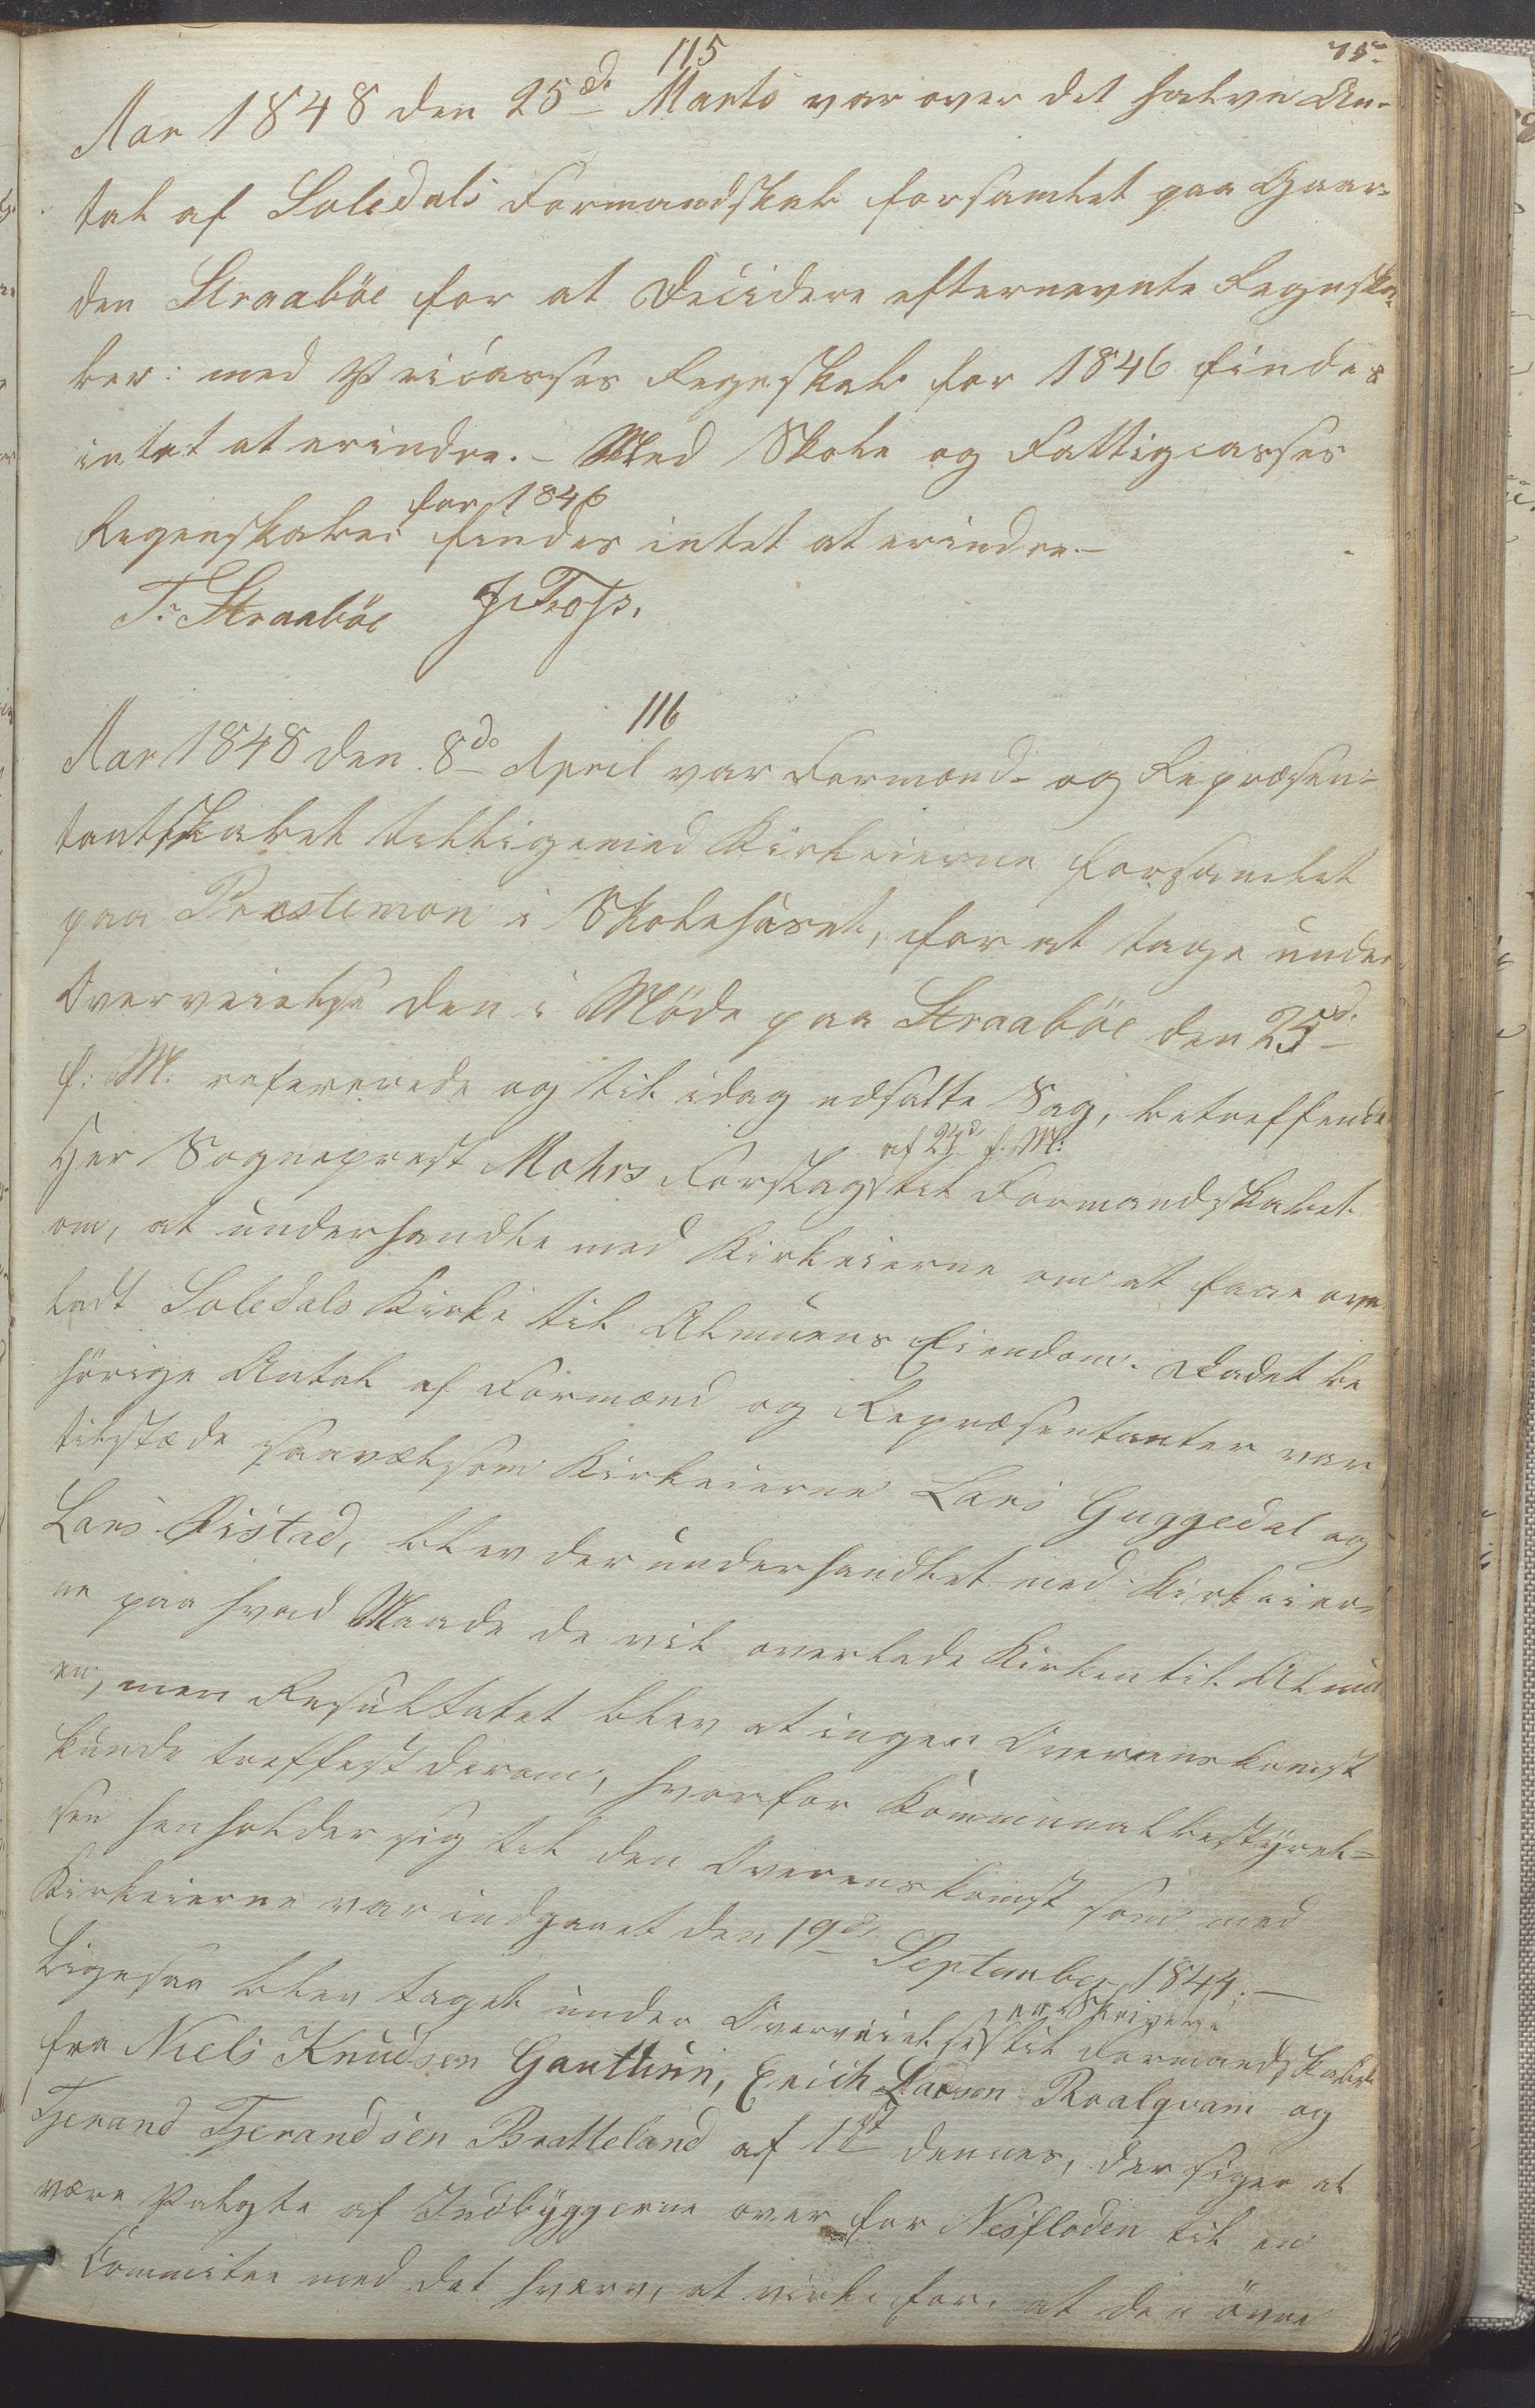 115
75.
Aar 1848 den 25de Marts var over det halve An-
tal af Soledals Formandskab forsamlet paa Gaar-
den Straabøe for at decidere efternevnte Regnska-
ber: med Veicasses Regnskab for 1846 findes
intet at erindre. – Med Skole og Fattigcasses
for 1846
Regenskaber findes intet at erindre –
T. Straabøe
116
Aar 1848 den 8de April var Formænd- og Repræsen-
tantskabet tilligemed Kirkeierne forsamlet
paa Prestemon i Skolehuset, for at tage under
Overveielse den i Møde paa Straabøe den 25d.
f: M. refererede og til idag udsatte Sag, betreffende
af 24d. f. M:
Her Sogneprest Mohrs Forslag til Formandskabet
om, at underhandle med Kirkeierne om at faae over
ladt Soledals Kirke til Almuens Eiendom. Da det be
hørige Antal af Formænd og Repræsentanter var
tilstæde saavelsom Kirkeierne Lars Guggedal og
Lars Ristad, blev der underhandlet med Kirkeier-
ne paa hvad Maade de vil overlade Kirken til Almu
en, men Resultatet blev at ingen Overenskomst
kunde treffest derom, hvorfor Kommunalbestyrel-
sen henholder sig til den Overenskomst som med
Kirkeierne var indgaaet den 19de September 1844. –
en Skrivelse
Ligesaa blev taget under Overveielse til Formandskabet
fra Niels Knudsen Gauthun, Erich Larsen Roalqvam og
Tjerand Tjerandsen Bratteland af 1st dennes, der siger at
være valgte af Indbyggerne over for Nesfloden til en
Committee med det hverv, at virke for at den øvre